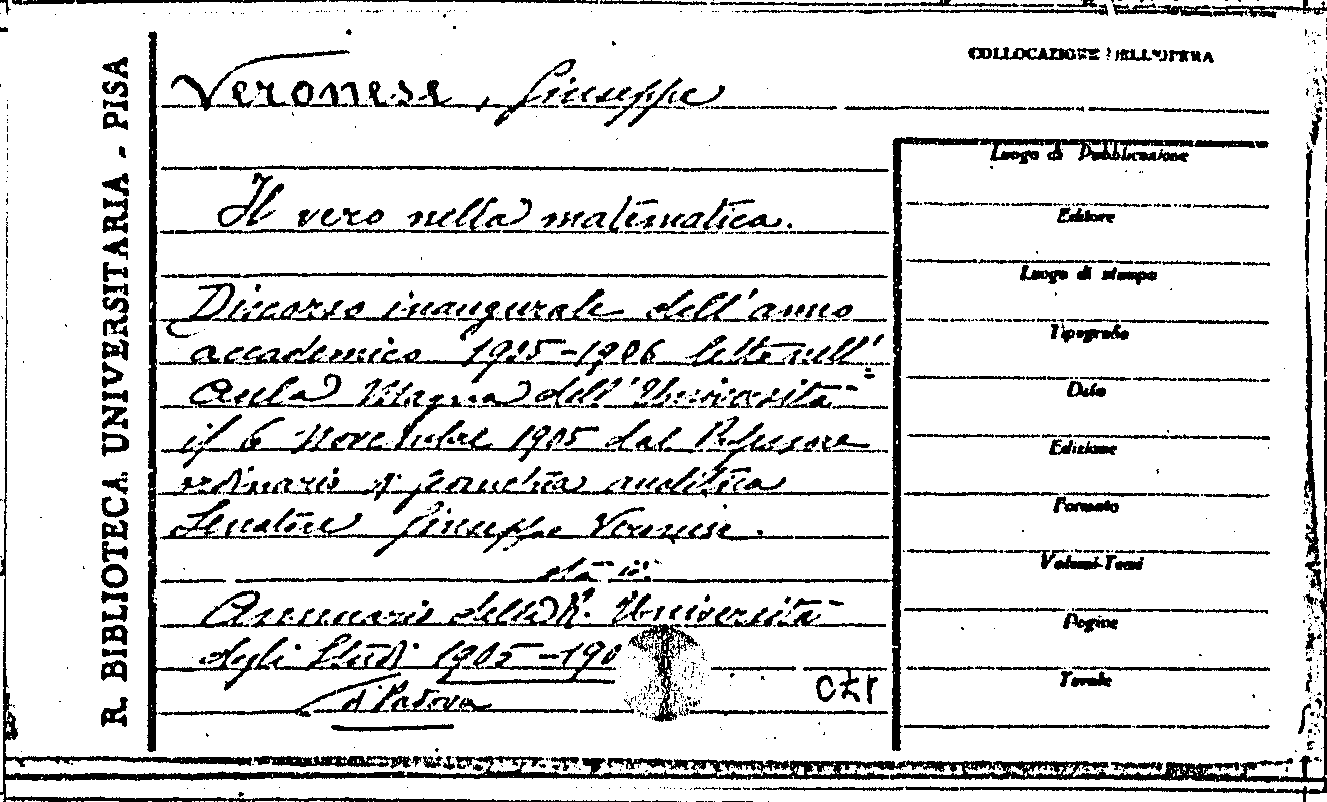 R. BIBLIOTECA UNIVERSITARIA - PISA
COLLOCAZIONE DELL'OPERA
Veronese, Giuseppe
Il vero nella matematica.
Discorso inaugurale dell'anno
accademico 1905-1906 letto nell'
Aula Magna dell'Università
il 6 Novembre 1905 dal Professore
ordinario di geometria analitica
Senatore Giuseppe Veronese.
sta in:
Annuario della R. Università
degli Studi 1905-190
di Padova
Luogo di Pubblicazione
Editore
Luogo di stampa
Tipografo
Data
Edizione
Formato
Volumi-Tomi
Pagine
Tavole